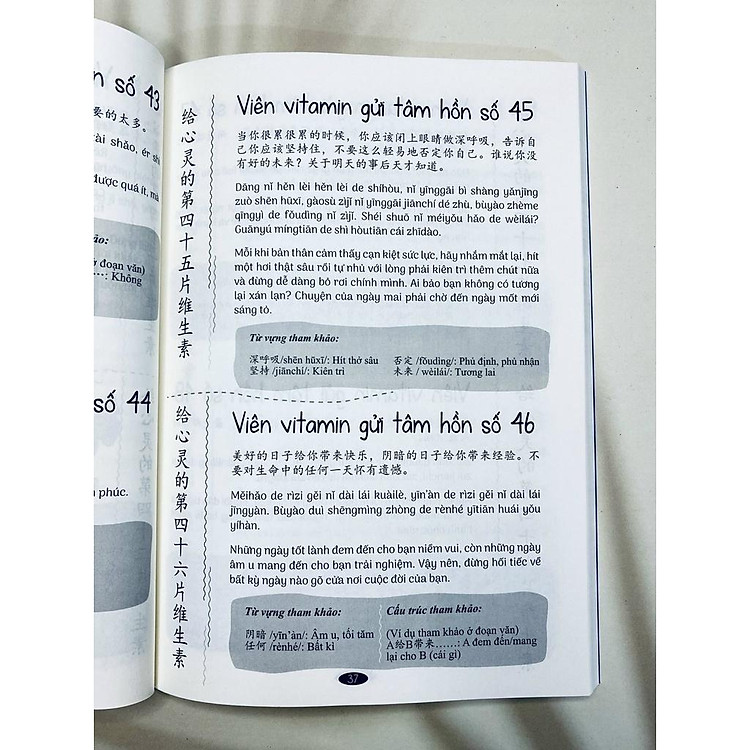 n số 43
要的太多。
ài shǎo, ér shì
được quá ít, mà
hảo:
ở đoạn văn)
……: Không
số 44
phúc.
给心灵的第四十五片维生素
Viên vitamin gửi tâm hồn số 45
当你很累很累的时候，你应该闭上眼睛做深呼吸，告诉自
己你应该坚持住，不要这么轻易地否定你自己。谁说你没
有好的未来？关于明天的事后天才知道。
Dāng nǐ hěn lèi hěn lèi de shíhòu, nǐ yīnggāi bì shàng yǎnjīng
zuò shēn hūxī, gàosù zìjǐ nǐ yīnggāi jiānchí dé zhù, bùyào zhème
qīngyì de fǒudìng nǐ zìjǐ. Shéi shuō nǐ méiyǒu hǎo de wèilái?
Guānyú míngtiān de shì hòutiān cái zhīdào.
Mỗi khi bản thân cảm thấy cạn kiệt sức lực, hãy nhắm mắt lại, hít
một hơi thật sâu rồi tự nhủ với lòng phải kiên trì thêm chút nữa
và đừng dễ dàng bỏ rơi chính mình. Ai bảo bạn không có tương
lai xán lạn? Chuyện của ngày mai phải chờ đến ngày mốt mới
sáng tỏ.
Từ vựng tham khảo:
深呼吸/shēn hūxī/: Hít thở sâu 否定 /fǒudìng/: Phủ định, phủ nhận
坚持 /jiānchí/: Kiên trì 未来 / wèilái/: Tương lai
给心灵的第四十六片维生素
Viên vitamin gửi tâm hồn số 46
美好的日子给你带来快乐，阴暗的日子给你带来经验。不
要对生命中的任何一天怀有遗憾。
Měihǎo de rìzi gěi nǐ dài lái kuàilè, yīn'àn de rìzi gěi nǐ dài lái
jīngyàn. Bùyào duì shēngmìng zhòng de rènhé yītiān huái yǒu
yíhàn.
Những ngày tốt lành đem đến cho bạn niềm vui, còn những ngày
âm u mang đến cho bạn trải nghiệm. Vậy nên, đừng hối tiếc về
bất kỳ ngày nào gõ cửa nơi cuộc đời của bạn.
Từ vựng tham khảo:
阴暗 /yīn'àn/: Âm u, tối tăm
任何 /rènhé/: Bất kì
Cấu trúc tham khảo:
(Ví dụ tham khảo ở đoạn văn)
A给B带来……: A đem đến/mang
lại cho B (cái gì)
37